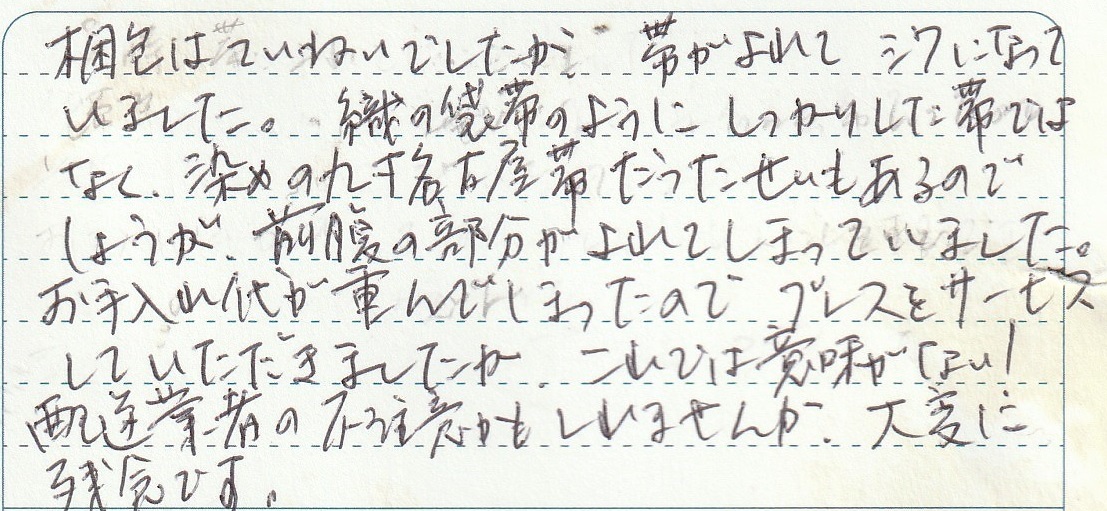 梱包はていねいでしたが 帯がよれて シワになって
いました。 織の袋帯のように しっかりした帯では
なく、染めの九寸名古屋帯だったせいもあるので
しょうが、前腹の部分がよれてしまっていました。
お手入れ代が重んでしまったので プレスをサービス
していただきましたが、これでは意味がない!
配送業者の不注意かもしれませんが、大変に
残念です。